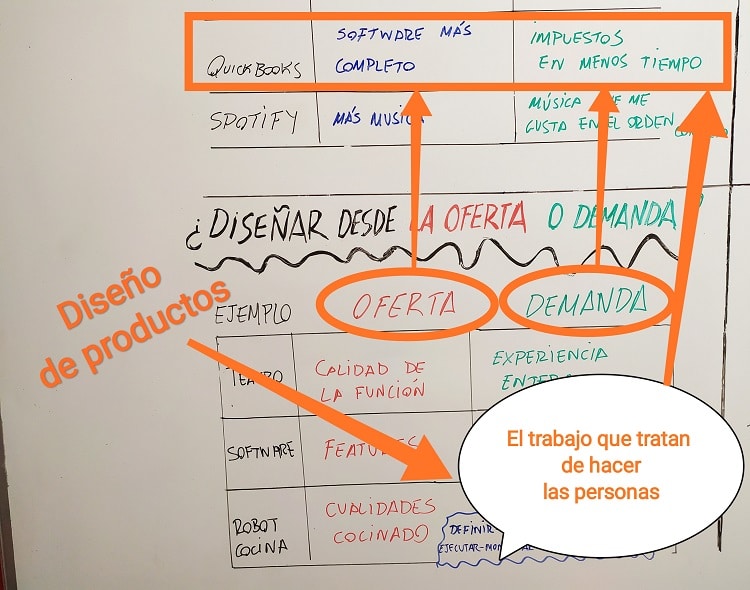 SOFTWARE MÁS
COMPLETO
IMPUESTOS
EN MENOS TIEMPO
QUICKBOOKS
SPOTIFY
MÁS MUSICA
MÚSICA QUE ME
GUSTA EN EL ORDEN
¿DISEÑAR DESDE LA OFERTA O DEMANDA?
Diseño
de productos
EJEMPLO
OFERTA
DEMANDA
TEATRO
CALIDAD DE
LA FUNCIÓN
EXPERIENCIA
SOFTWARE
FEATURES
El trabajo que tratan
de hacer
las personas
ROBOT
COCINA
CUALIDADES
COCINADO
DEFINIR